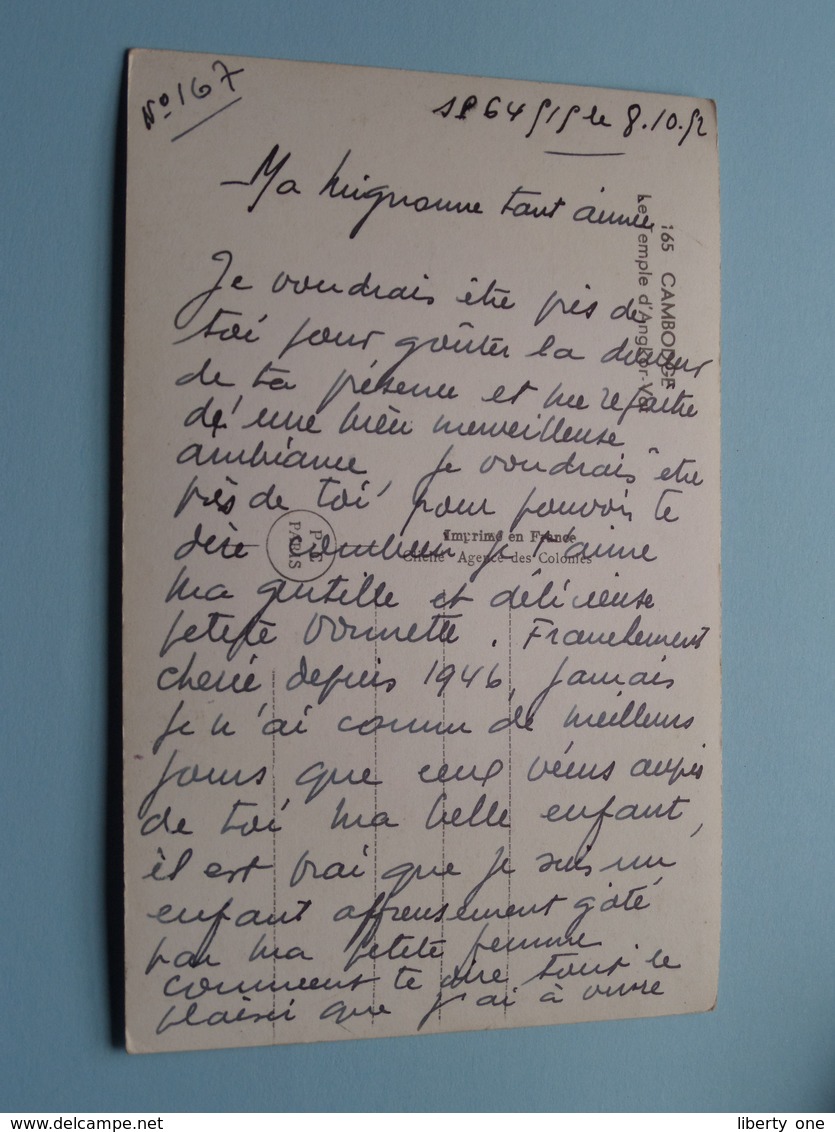 N° 167
SP 64515 le 8.10.52
Ma Mignonne tant aimée
Je voudrais être près de
toi pour goûter la douceur
de ta présence et me repaître
d'une bien merveilleuse
ambiance, je voudrais être
près de toi pour pouvoir te
dire combien je t'aime
ma gentille et délicieuse
petite Vonnette. Franchement
cherie depuis 1946, jamais
je n'ai connu de meilleurs
jours que ceux vécus auprès
de toi ma belle enfant,
il est vrai que je suis un
enfant affreusement gâté
par ma petite femme
comment te dire tout le
plaisir que j'ai à vivre
165 CAMBODGE
Le Temple d'Angkor-Vat
PARIS
Imprimé en France
Cliché Agence des Colonies
www.delcampe.net
liberty one